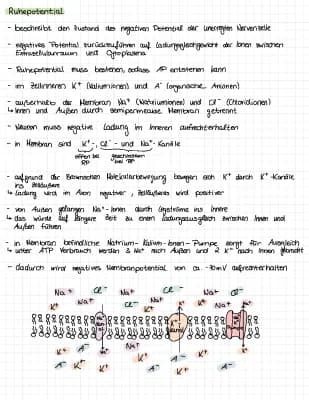 Ruhepotential
- beschreibt den Zustand des negativen Potentials der unerregten Nervenzelle
- negatives Potential zurückzuführen auf Ladungsgleichgewicht der Ionen zwischen
Extrazellulärraum und Cytoplasma
- Ruhepotential muss bestehen, sodass AP entstehen kann
- im Zellinneren K+ (Kaliumionen) und A- (organische Anionen)
- außerhalb der Membran Na+ (Natriumionen) und Cl- (Chloridionen)
↳ Innen und Außen durch semipermeable Membran getrennt
- Neuron muss negative Ladung im Inneren aufrechterhalten
- in Membran sind K+-, Cl-- und Na+-Kanäle
offen bei RP geschlossen bei RP
- aufgrund der Brownschen Molekularbewegung bewegen sich K+ durch K+-Kanäle
ins Zelläußere
↳ Ladung wird im Axon negativer, Zelläußeres wird positiver
- von Außen gelangen Na+-Ionen durch Leckströme ins Innere
↳ das würde auf längere Zeit zu einem Ladungsausgleich zwischen Innen und
Außen führen
- in Membran befindliche Natrium-Kalium-Ionen-Pumpe sorgt für Ausgleich
↳ unter ATP Verbrauch werden 3 Na+ nach Außen und 2 K+ nach Innen
- dadurch wird negatives Membranpotential von ca. -70mV aufrechterhalten
Na+ Cl- Cl- Na+ Cl- Na+ Cl-
K+ Na+ K+ Na+ K+ Na+ K+
K+ A- K+ A- K+ A- K+
A- K+ K+ A- K+ A- K+